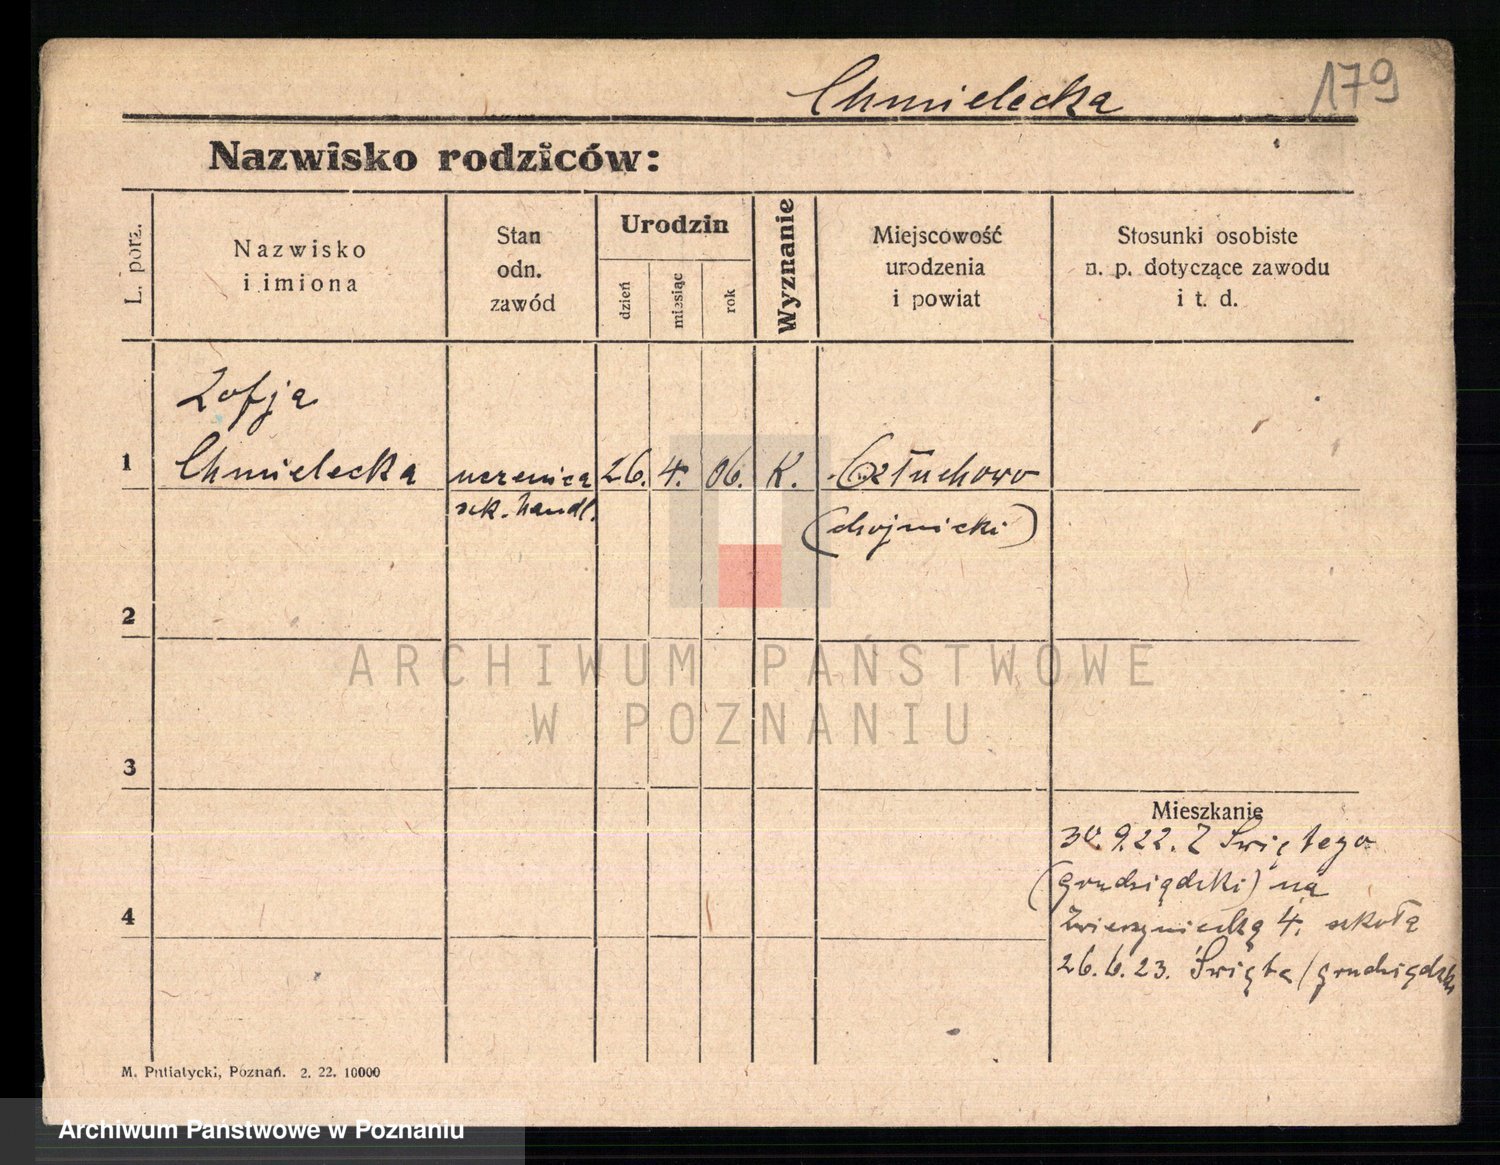 Chmielecka
179
Nazwisko rodziców:
L. porz.
Nazwisko
i imiona
Stan
odn.
zawód
Urodzin
dzień
miesiąc
rok
Wyznanie
Miejscowość
urodzenia
i powiat
Stosunki osobiste
n. p. dotyczące zawodu
i t. d.
Zofja
1 Chmielecka uczenica 26. 4. 06. K. Człuchowo
szk. handl. (chojnicki)
2
ARCHIWUM PAŃSTWOWE
W POZNANIU
3
Mieszkanie
30.9.22. Z Świętego
(grudziądzki) na
4 Zwierzyniecką 4. szkołą
26.6.23. Święte (grudziądzki
M. Putiatycki, Poznań. 2. 22. 10000
Archiwum Państwowe w Poznaniu